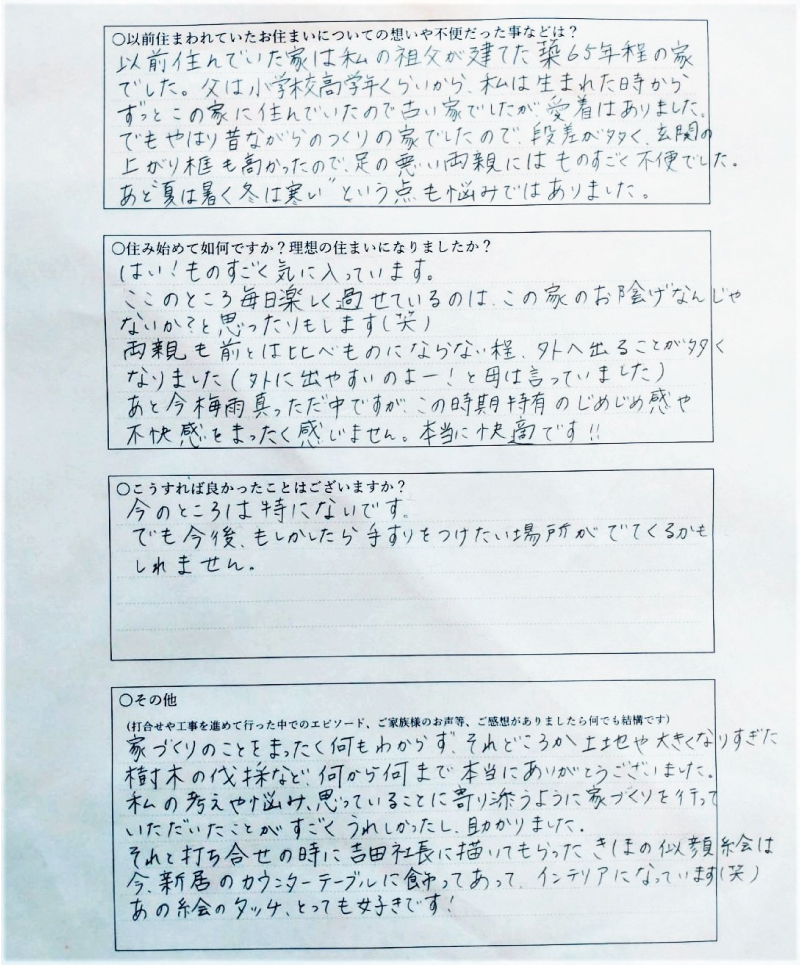 ○以前住まわれていたお住まいについての想いや不便だった事などは？
以前住んでいた家は私の祖父が建てた築65年程の家
でした。父は小学校高学年くらいから、私は生まれた時から
ずっとこの家に住んでいたので古い家でしたが愛着はありました。
でもやはり昔ながらのつくりの家でしたので、段差が多く、玄関の
上がり框も高かったので、足の悪い両親にはものすごく不便でした。
あと"夏は暑く冬は寒い"という点も悩みではありました。
○住み始めて如何ですか？理想の住まいになりましたか？
はい！ものすごく気に入っています。
ここのところ毎日楽しく過せているのは、この家のお陰げなんじゃ
ないか？と思ったりもします(笑)
両親も前とは比べものにならない程、外へ出ることが多く
なりました(外に出やすいのよー！と母は言っていました)
あと今梅雨真っただ中ですが、この時期特有のじめじめ感や
不快感をまったく感じません。本当に快適です!!
○こうすれば良かったことはございますか？
今のところは特にないです。
でも今後、もしかしたら手すりをつけたい場所がでてくるかも
しれません。
○その他
(打合せや工事を進めて行った中でのエピソード、ご家族様のお声等、ご感想がありましたら何でも結構です)
家づくりのことをまったく何もわからず、それどころか土地や大きくなりすぎた
樹木の伐採など、何から何まで本当にありがとうございました。
私の考えや悩み、思っていることに寄り添うように家づくりを行って
いただいたことがすごくうれしかったし、助かりました。
それと打ち合せの時に吉田社長に描いてもらったきしまの似顔絵は
今、新居のカウンターテーブルに飾ってあって、インテリアになっています(笑)
あの絵のタッチ、とっても好きです！